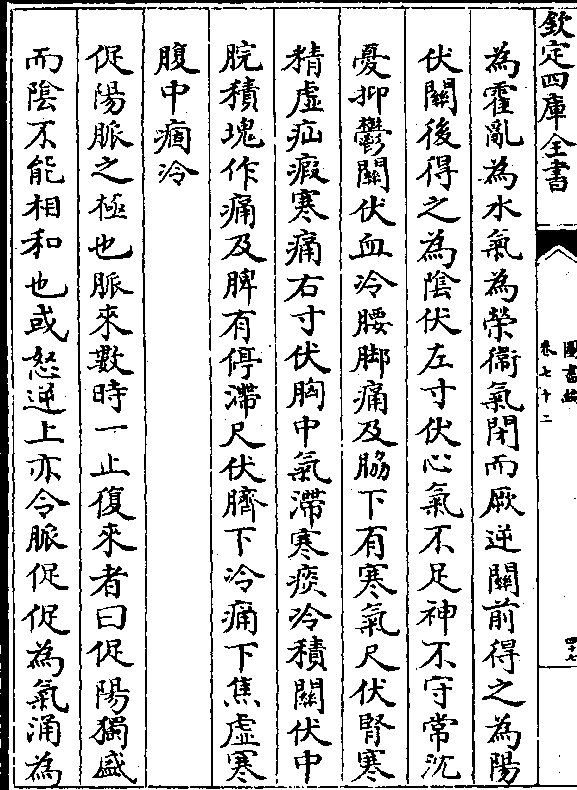 欽定四庫全書
圖書編
卷七十二
四十七
為霍亂為水氣為榮衛氣閉而厥逆關前得之為陽
伏關後得之為陰伏左寸伏心氣不足神不守常沉
憂抑鬱關伏血冷腰脚痛及脇下有寒氣尺伏腎寒
精虛疝瘕寒痛右寸伏胸中氣滯寒痰冷積關伏中
脘積塊作痛及脾有停滯尺伏臍下冷痛下焦虛寒
腹中痼冷
促陽脈之極也脈來數時一止復來者曰促陽獨盛
而陰不能相和也或怒逆上亦令脈促促為氣涌為